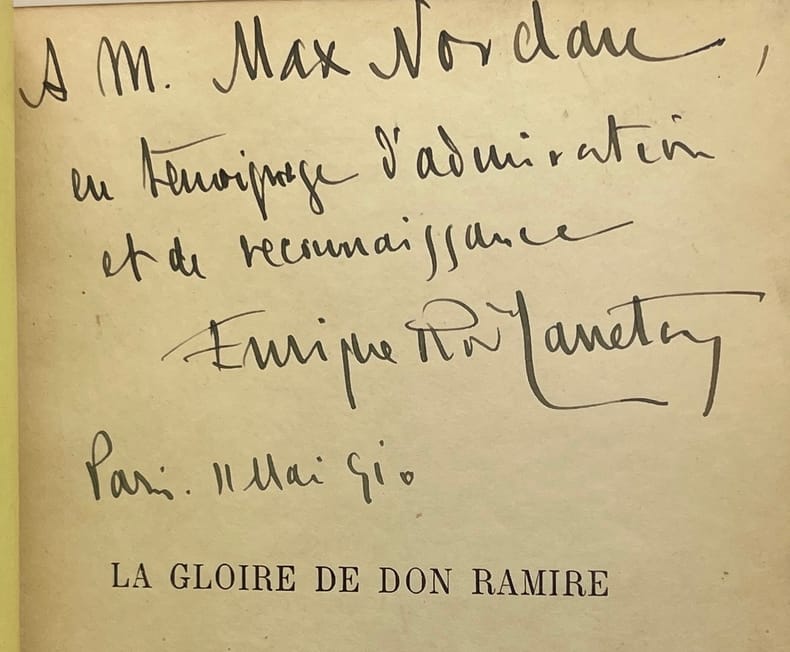 A M. Max Nordau,
en témoignage d'admiration
et de reconnaissance
Enrique Rz Larreta
Paris. 11 Mai 910
LA GLOIRE DE DON RAMIRE